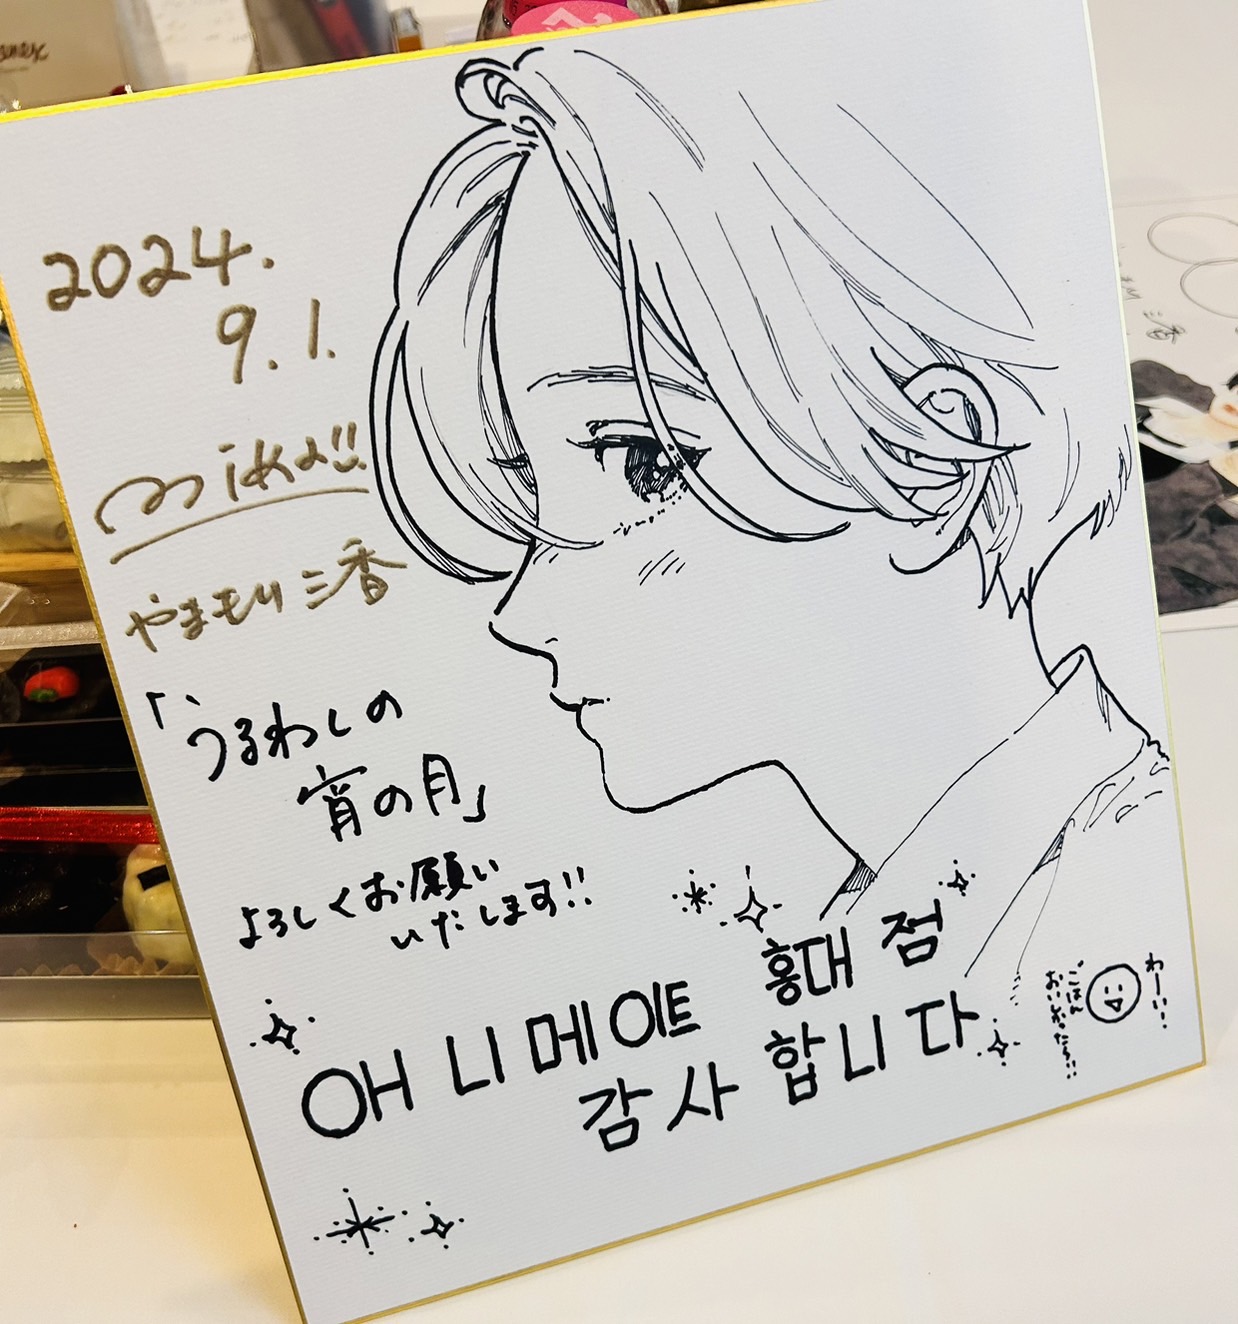 2024.
9.1.
mika!!
やまもり三香
「うるわしの
宵の月」
よろしくお願い
いたします!!
애니메이트 홍대점
감사합니다
わーい!!
ごはん
おいしかったよ!!